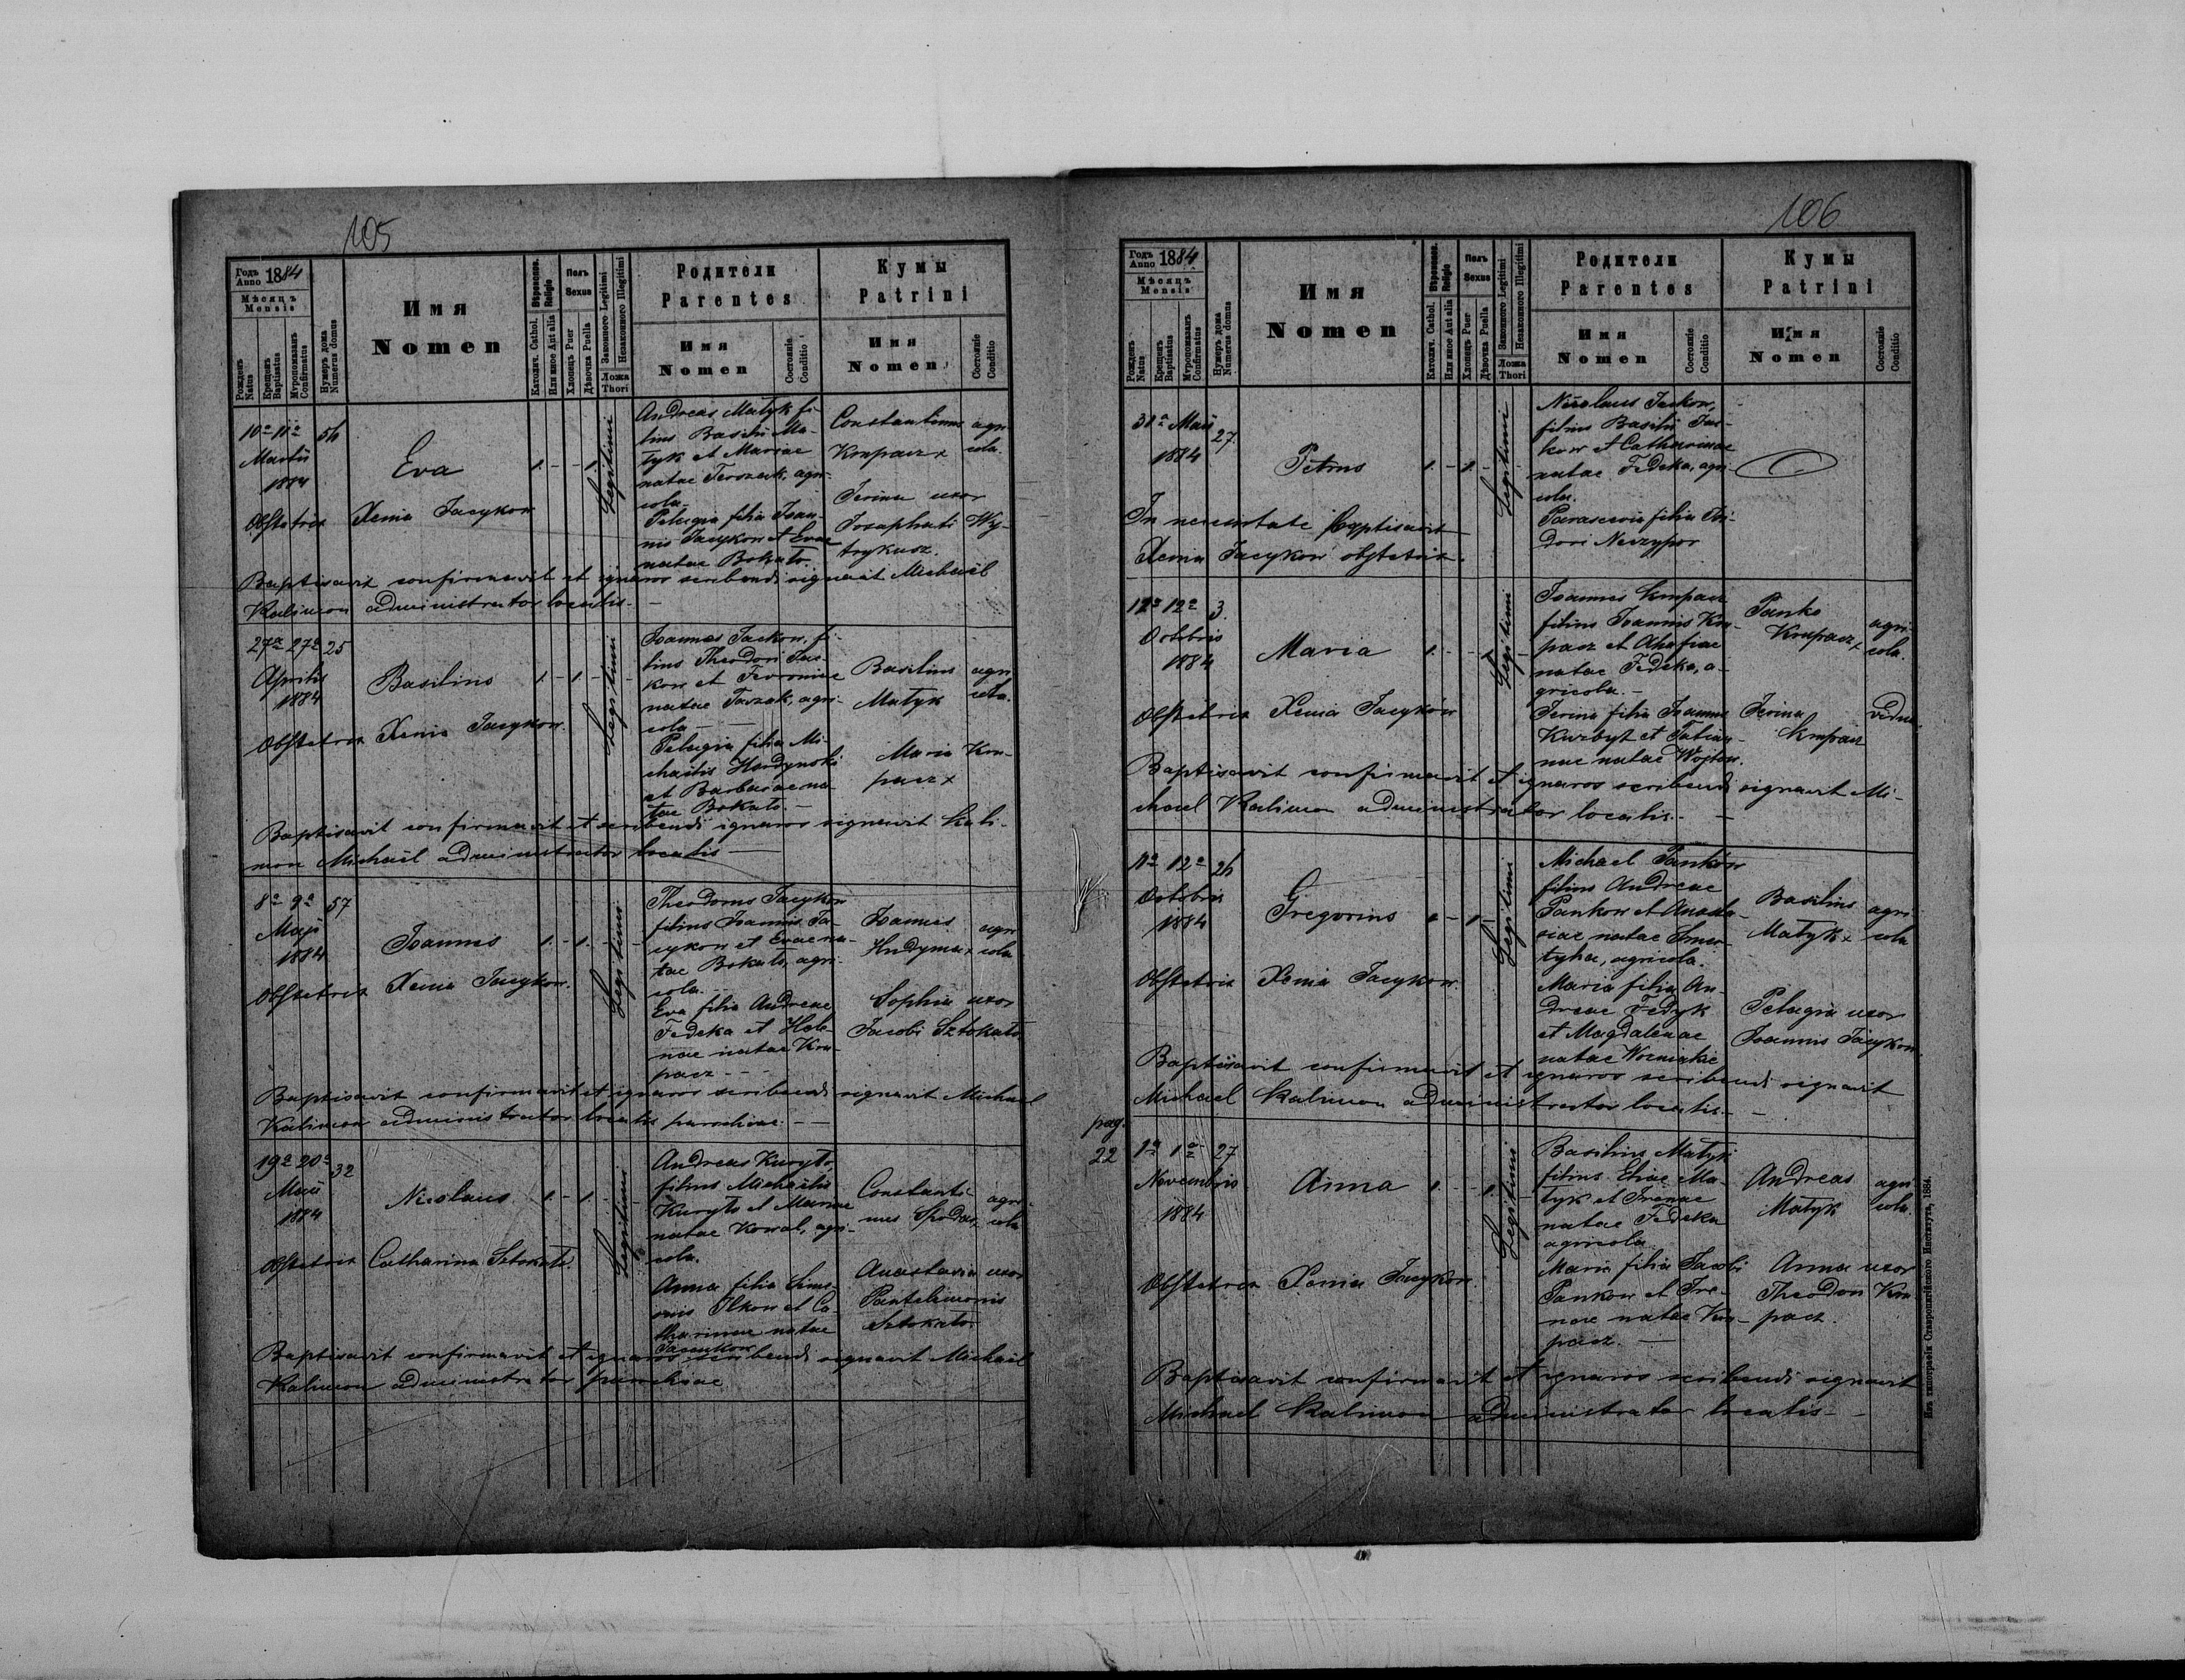 105
Годъ Anno 1884
Мѣсяцъ Mensis
Рожденъ Natus
Крещенъ Baptisatus
Мѵропомазанъ Confirmatus
Нумеръ дома Numerus domus
Имя
Nomen
Вѣроиспов. Religio
Католич. Cathol.
Или иное Aut alia
Полъ Sexus
Хлопець Puer
Дѣвочка Puella
Законного Legitimi
Незаконного Illegitimi
Ложа Thori
Родители
Parentes
Имя
Nomen
Состояніе
Conditio
Кумы
Patrini
Имя
Nomen
Состояніе
Conditio
10a 11a
Martii
1884
Eva
1. - - 1.
Legitimi
Andreas Matyk fi-
lius Basilii Ma-
tyk et Mariae
natae Teroszak, agri-
cola.
Pelagia filia Joan-
nis Jacykow et Evae
natae Bokalo.
Constantinus
Krupacz x
agri
cola.
Irina uxor
Josaphati Wy-
trykusz.
Obstetrix Xenia Jacykow
Baptisavit confirmavit et ignaros scribendi signavit Michaël
Kalimon administrator localis. -
27a 27a 25
Aprilis
1884
Basilius
1. - 1. -
Legitimi
Joannes Jackow, fi-
lius Theodori Jac-
kow et Fevroniae
natae Taszak, agri-
cola -
Pelagia filia Mi-
chaëlis Hordynski
et Barbarae na-
tae Bokalo. -
Basilius
Matyk
agri
cola.
Maria Kru-
pacz x
Obstetrix Xenia Jacykow.
Baptisavit confirmavit et scribendi ignaros signavit Kali-
mon Michaël administrator localis -
8a 9a 57
Maji
1884
Joannes
1. - 1. -
Legitimi
Theodorus Jacykow
filius Joannis Ja-
cykow et Evae na-
tae Bokalo, agri-
cola. -
Eva filia Andreae
Fedeka et Hele-
nae natae Kru-
pacz - -
Joannes
Hudyma x
agri
cola
Sophia uxor
Jacobi Sztokalo
Obstetrix Xenia Jacykow.
Baptisavit confirmavit et ignaros scribendi signavit Michael
Kalimon administrator localis parochiae. - -
19a 20a 32
Maii
1884
Nicolaus
1. - 1. -
Legitimi
Andreas Kurylo,
filius Michaëlis
Kurylo et Mariae
natae Kowal, agri-
cola.
Anna filia Sime-
onis Ilkow et Ca-
tharinae natae
Constanti-
nus
agri-
cola
Anastasia uxor
Pantelimonis
Sztokalo
Obstetrix Catharina Sztokalo.
Baptisavit confirmavit et ignaros scribendi signavit Michaël
Kalimon administrator parochiae
106
Годъ Anno 1884
Мѣсяцъ Mensis
Рожденъ Natus
Крещенъ Baptisatus
Мѵропомазанъ Confirmatus
Нумеръ дома Numerus domus
Имя
Nomen
Вѣроиспов. Religio
Католич. Cathol.
Или иное Aut alia
Полъ Sexus
Хлопець Puer
Дѣвочка Puella
Законного Legitimi
Незаконного Illegitimi
Ложа Thori
Родители
Parentes
Имя
Nomen
Состояніе
Conditio
Кумы
Patrini
Имя
Nomen
Состояніе
Conditio
31a Maii 27.
1884
Petrus
1. - 1. -
Legitimi
Nicolaus Jackow,
filius Basilii Jac-
kow et Catharinae
natae Fedeka, agri-
cola.
Parascevia filia Isi-
dori Neczypor
In necessitate baptisavit
Xenia Jacykow obstetrix.
12a 12a 3.
Octobris
1884
Maria
1. - - 1.
Legitimi
Joannes Krupacz
filius Joannis Kru-
pacz et Ahafiae
natae Fedeka, a-
gricola. -
Irina filia Joannis
Kuzbyt et Tatian-
nae natae Wojtow.
Panko
Krupacz x
agri-
cola.
Irina
Krupacz
vidua
Obstetrix Xenia Jacykow
Baptisavit confirmavit et ignaros scribendi signavit Mi-
chael Kalimon administrator localis. - -
11a 12a
Octobris
1884
Gregorius
1 - 1. -
Legitimi
Michael Pankow
filius Andreae
Pankow et Anasta-
siae natae
agricola.
Maria filia An-
dreae Fedyk
et Magdalenae
natae Wozniakie
Basilius
Matyk x
agri
cola
Pelagia uxor
Joannis Jacykow.
Obstetrix Xenia Jacykow.
Baptisavit confirmavit et ignaros scribendi signavit
Michael Kalimon administrator localis. - -
pag.
22
1a 1a 27
Novembris
1884
Anna
1. - - 1.
Legitimi
Basilius Matyk
filius Eliae Ma-
tyk et Irenae
natae Fedeka
agricola.
Maria filia Jacobi
Pankow et Ire-
nae natae Kru-
pacz. -
Andreas
Matyk
agri
cola.
Anna uxor
Theodori Kru-
pacz.
Obstetrix Xenia Jacykow
Baptisavit confirmavit et ignaros scribendi signavit
Michael Kalimon administrator localis. -
Изъ типографіи Ставропигійского Института, 1884.